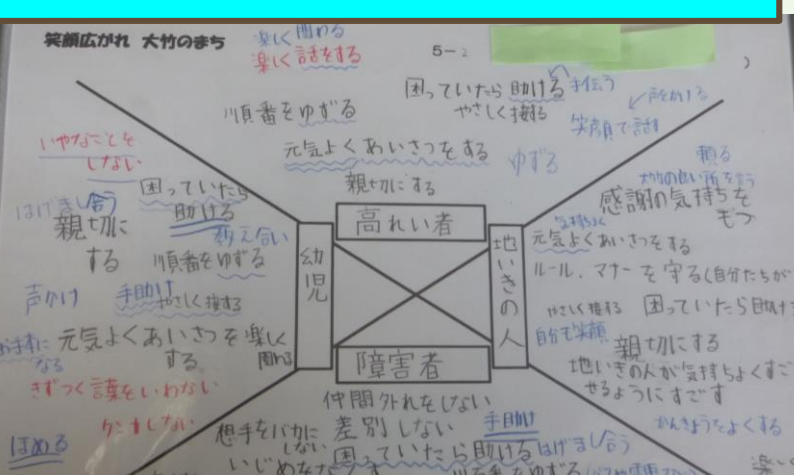 笑顔広がれ 大竹のまち
5-2
楽しく関わる
楽しく話をする
困っていたら助ける
手伝う
やさしく接する
声をかける
笑顔で話す
順番をゆずる
元気よくあいさつをする
ゆずる
親切にする
高れい者
いやなことを
しない
困っていたら
助ける
はげまし合う
親切に
する
支え合い
順番をゆずる
声かけ
手助け
やさしく接する
お手本に
なる
元気よくあいさつを
する
楽しく
関わる
きずつく言葉をいわない
ケンカしない
ほめる
幼児
頼る
大竹の良い所を言う
感謝の気持ちを
もつ
気持ちよく
元気よくあいさつをする
ルール、マナーを守る(自分たちが
やさしく接する
困っていたら助け
自分で笑顔
親切にする
地いきの人が気持ちよくすご
せるようにすごす
かんきょうをよくする
地いきの人
障害者
仲間外れをしない
想手をバカに
しない
差別しない
手助け
困っていたら助ける
はげまし合う